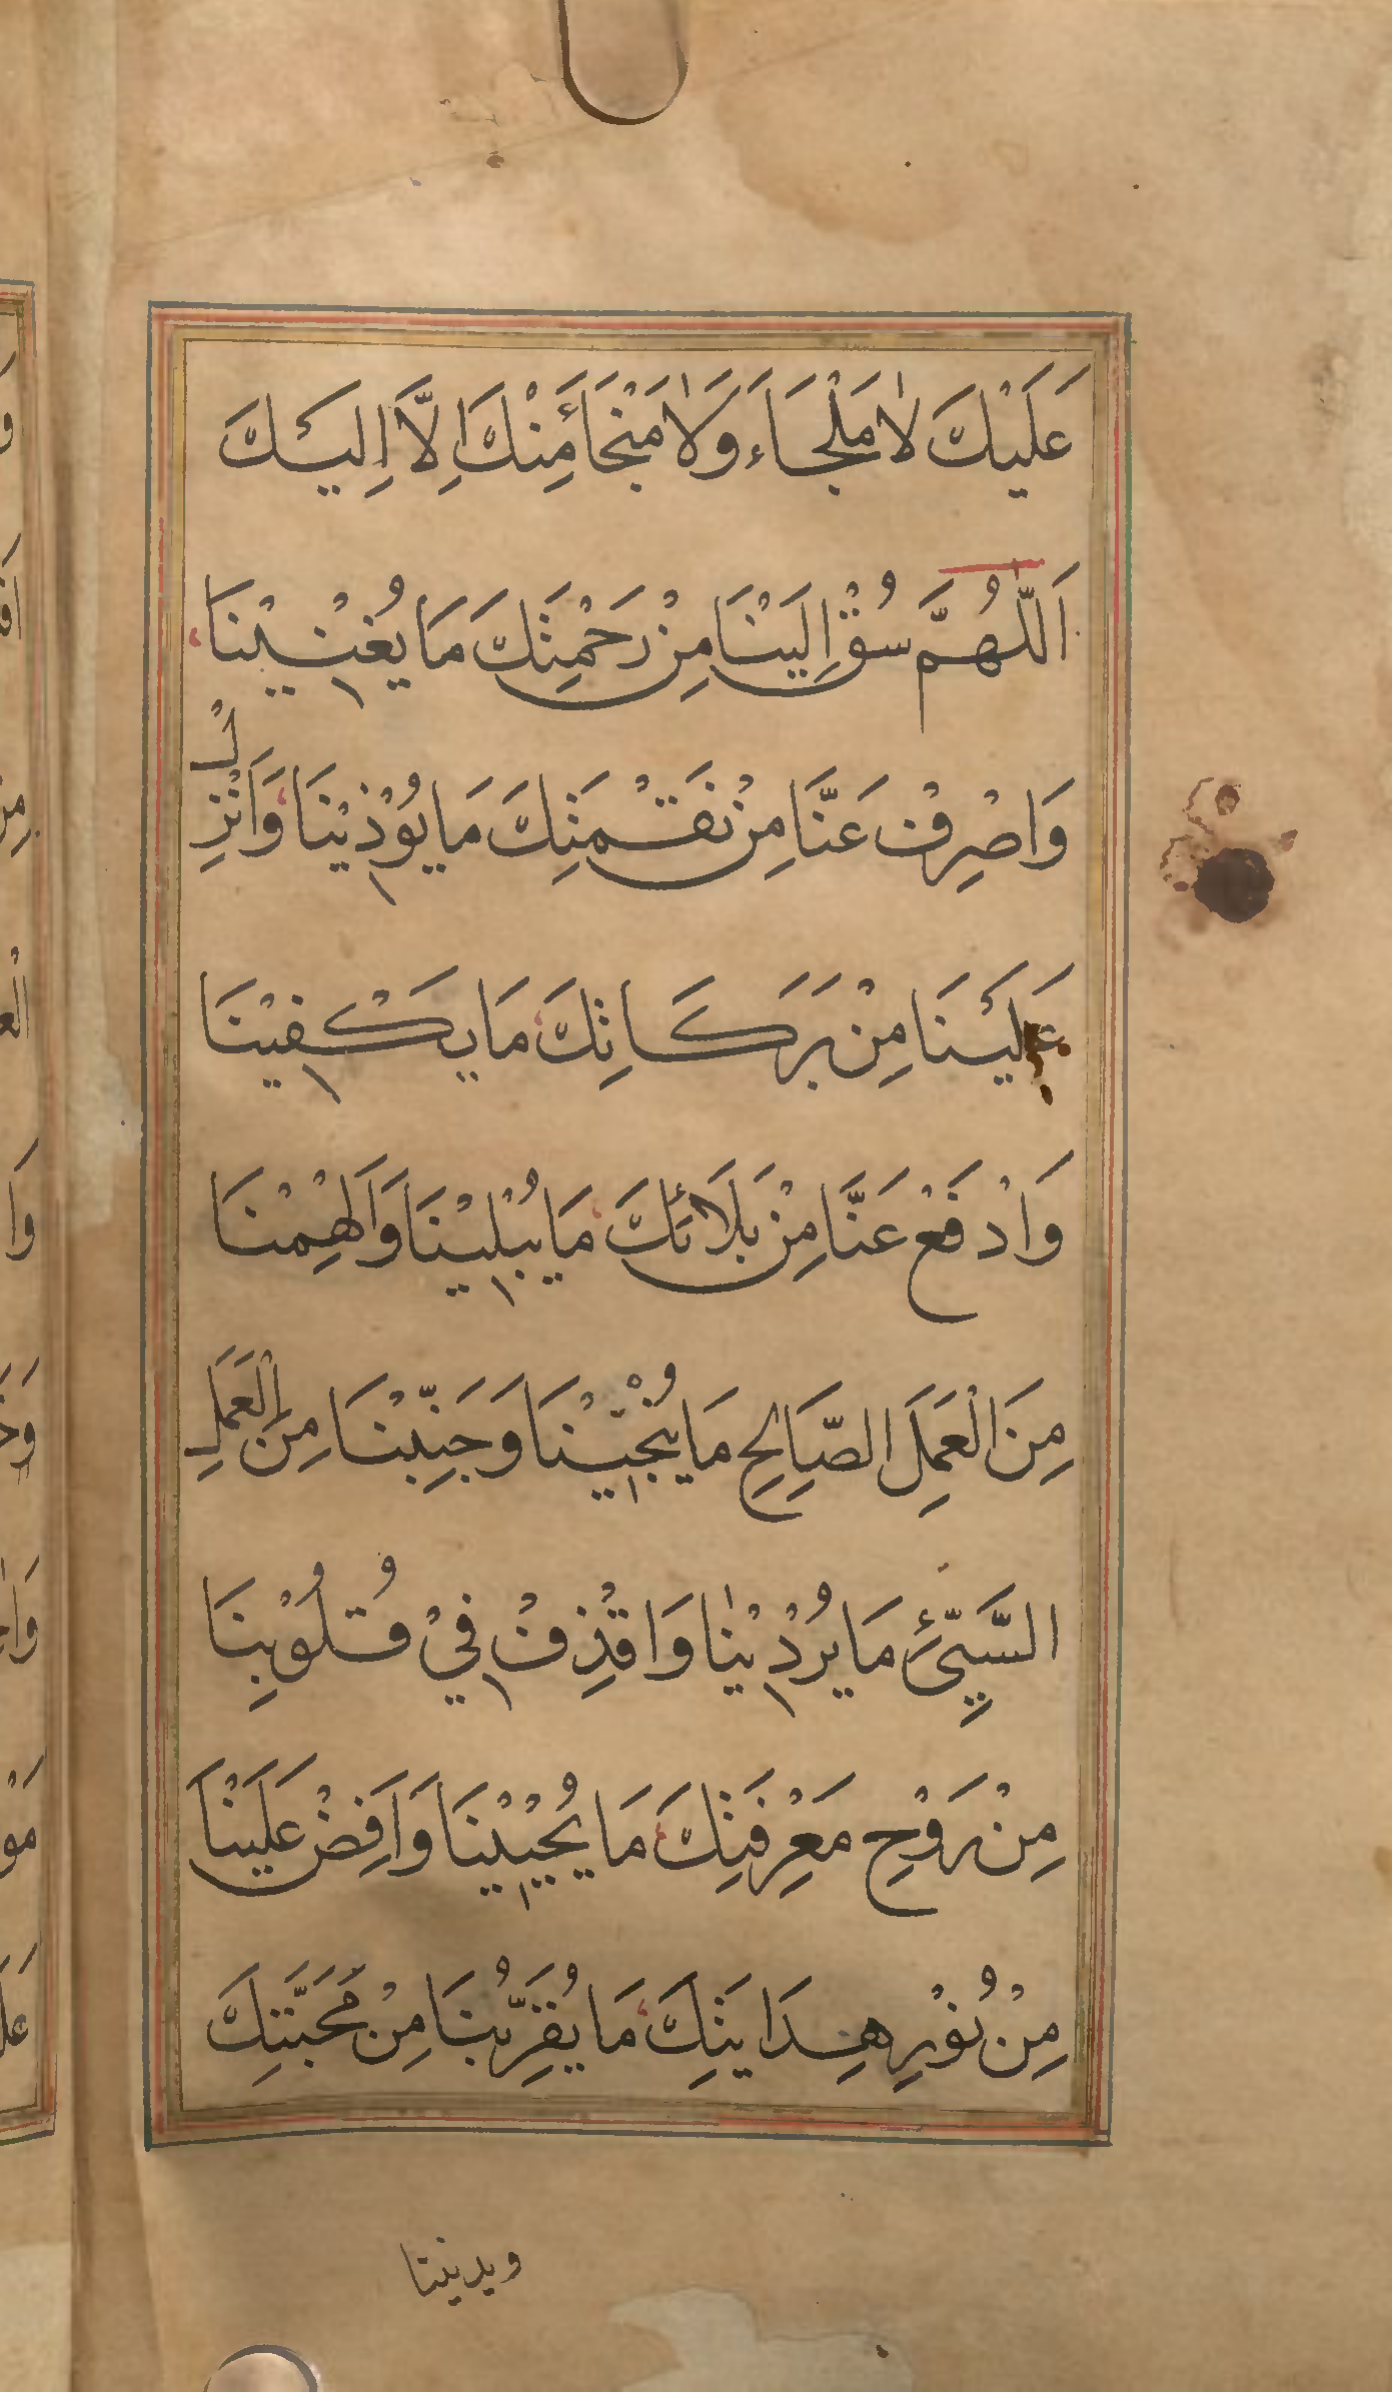 عَلَيْكَ لَا مَلْجَاءَ وَلَا مَنْجَأَ مِنْكَ اِلَّا اِلَيْكَ
اَللّٰهُمَّ سُقْ اِلَيْنَا مِنْ رَحْمَتِكَ مَا يُغْنِيْنَا
وَاصْرِفْ عَنَّا مِنْ نَقْمَتِكَ مَا يُؤْذِيْنَا وَاَنْزِلْ
عَلَيْنَا مِنْ بَرَكَاتِكَ مَا يَكْفِيْنَا
وَادْفَعْ عَنَّا مِنْ بَلَائِكَ مَا يُبْلِيْنَا وَاَلْهِمْنَا
مِنَ الْعَمَلِ الصَّالِحِ مَا يُنْجِيْنَا وَجَنِّبْنَا مِنَ الْعَمَلِ
السَّيِّئِ مَا يُرْدِيْنَا وَاقْذِفْ فِيْ قُلُوْبِنَا
مِنْ رَوْحِ مَعْرِفَتِكَ مَا يُحْيِيْنَا وَاَفِضْ عَلَيْنَا
مِنْ نُوْرِ هِدَايَتِكَ مَا يُقَرِّبُنَا مِنْ مَحَبَّتِكَ
ويدنينا